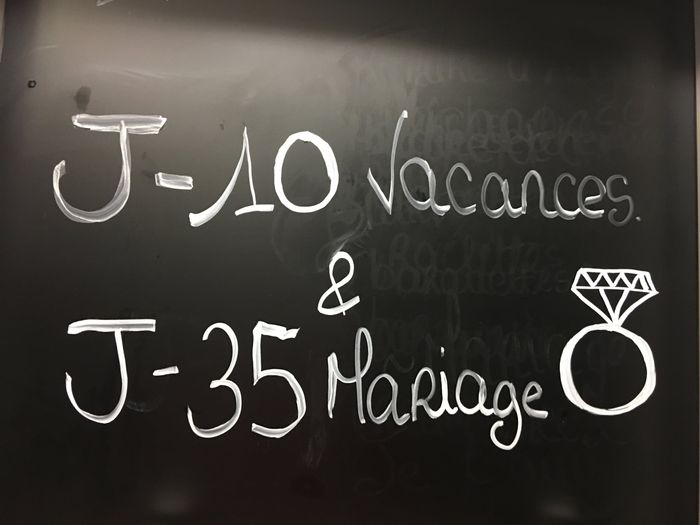 J-10 Vacances.
&
J-35 Mariage